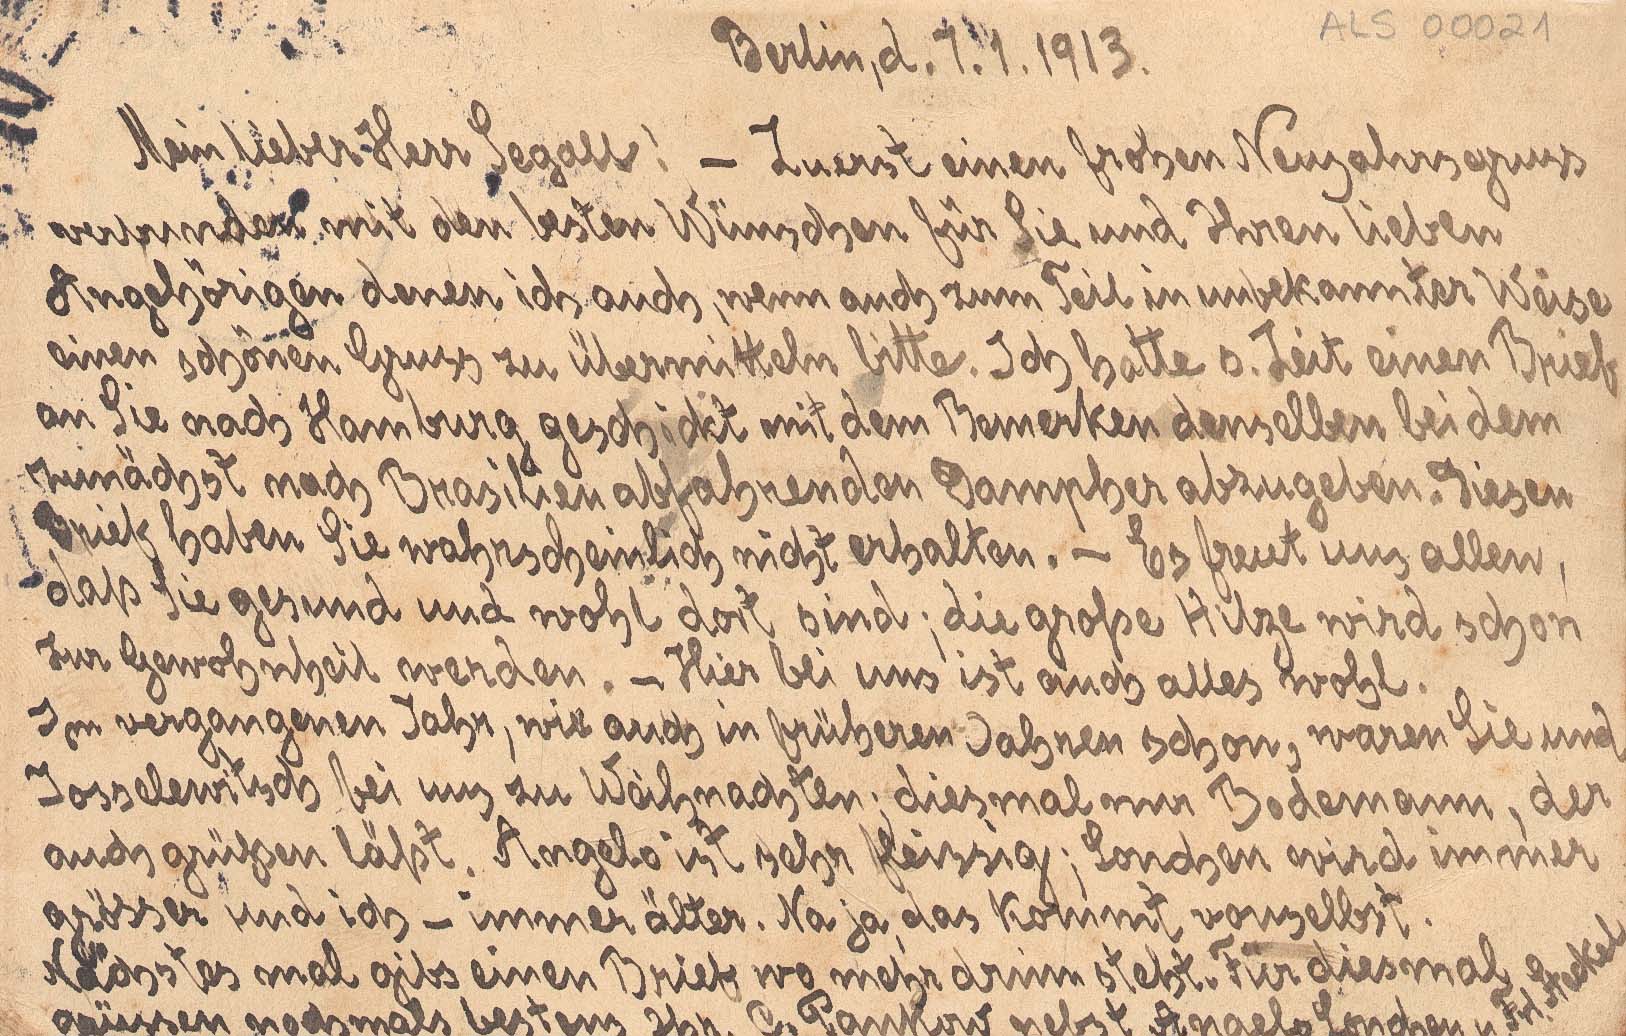 ALS 00021
Berlin, d. 7.1.1913.
Mein lieber Herr Segall! – Zuerst einen frohen Neujahrsgruss
verbunden mit den besten Wünschen für Sie und Ihren lieben
Angehörigen denen ich auch, wenn auch zum Teil in unbekannter Weise
einen schönen Gruss zu übermitteln bitte. Ich hatte s. Zeit einen Brief
an Sie nach Hamburg geschickt mit dem Bemerken denselben bei dem
zunächst nach Brasilien abfahrenden Dampfer abzugeben. Diesen
Brief haben Sie wahrscheinlich nicht erhalten. – Es freut uns allen,
daß Sie gesund und wohl dort sind; die große Hitze wird schon
zur Gewohnheit werden. – Hier bei uns ist auch alles wohl.
Im vergangenen Jahr, wie auch in früheren Jahren schon, waren Sie und
Josselewitsch bei uns zu Weihnachten; diesmal nur Bodemann, der
auch grüßen läßt. Angelo ist sehr fleissig; Londchen wird immer
grösser und ich – immer älter. Na ja, das kommt vonselbst.
Nächstes mal gibs einen Brief wo mehr drinn steht. Für diesmal
grüssen nochmals bestens Ihr. C. Pankow nebst Angelo Londchen u. Frl. Jeckel